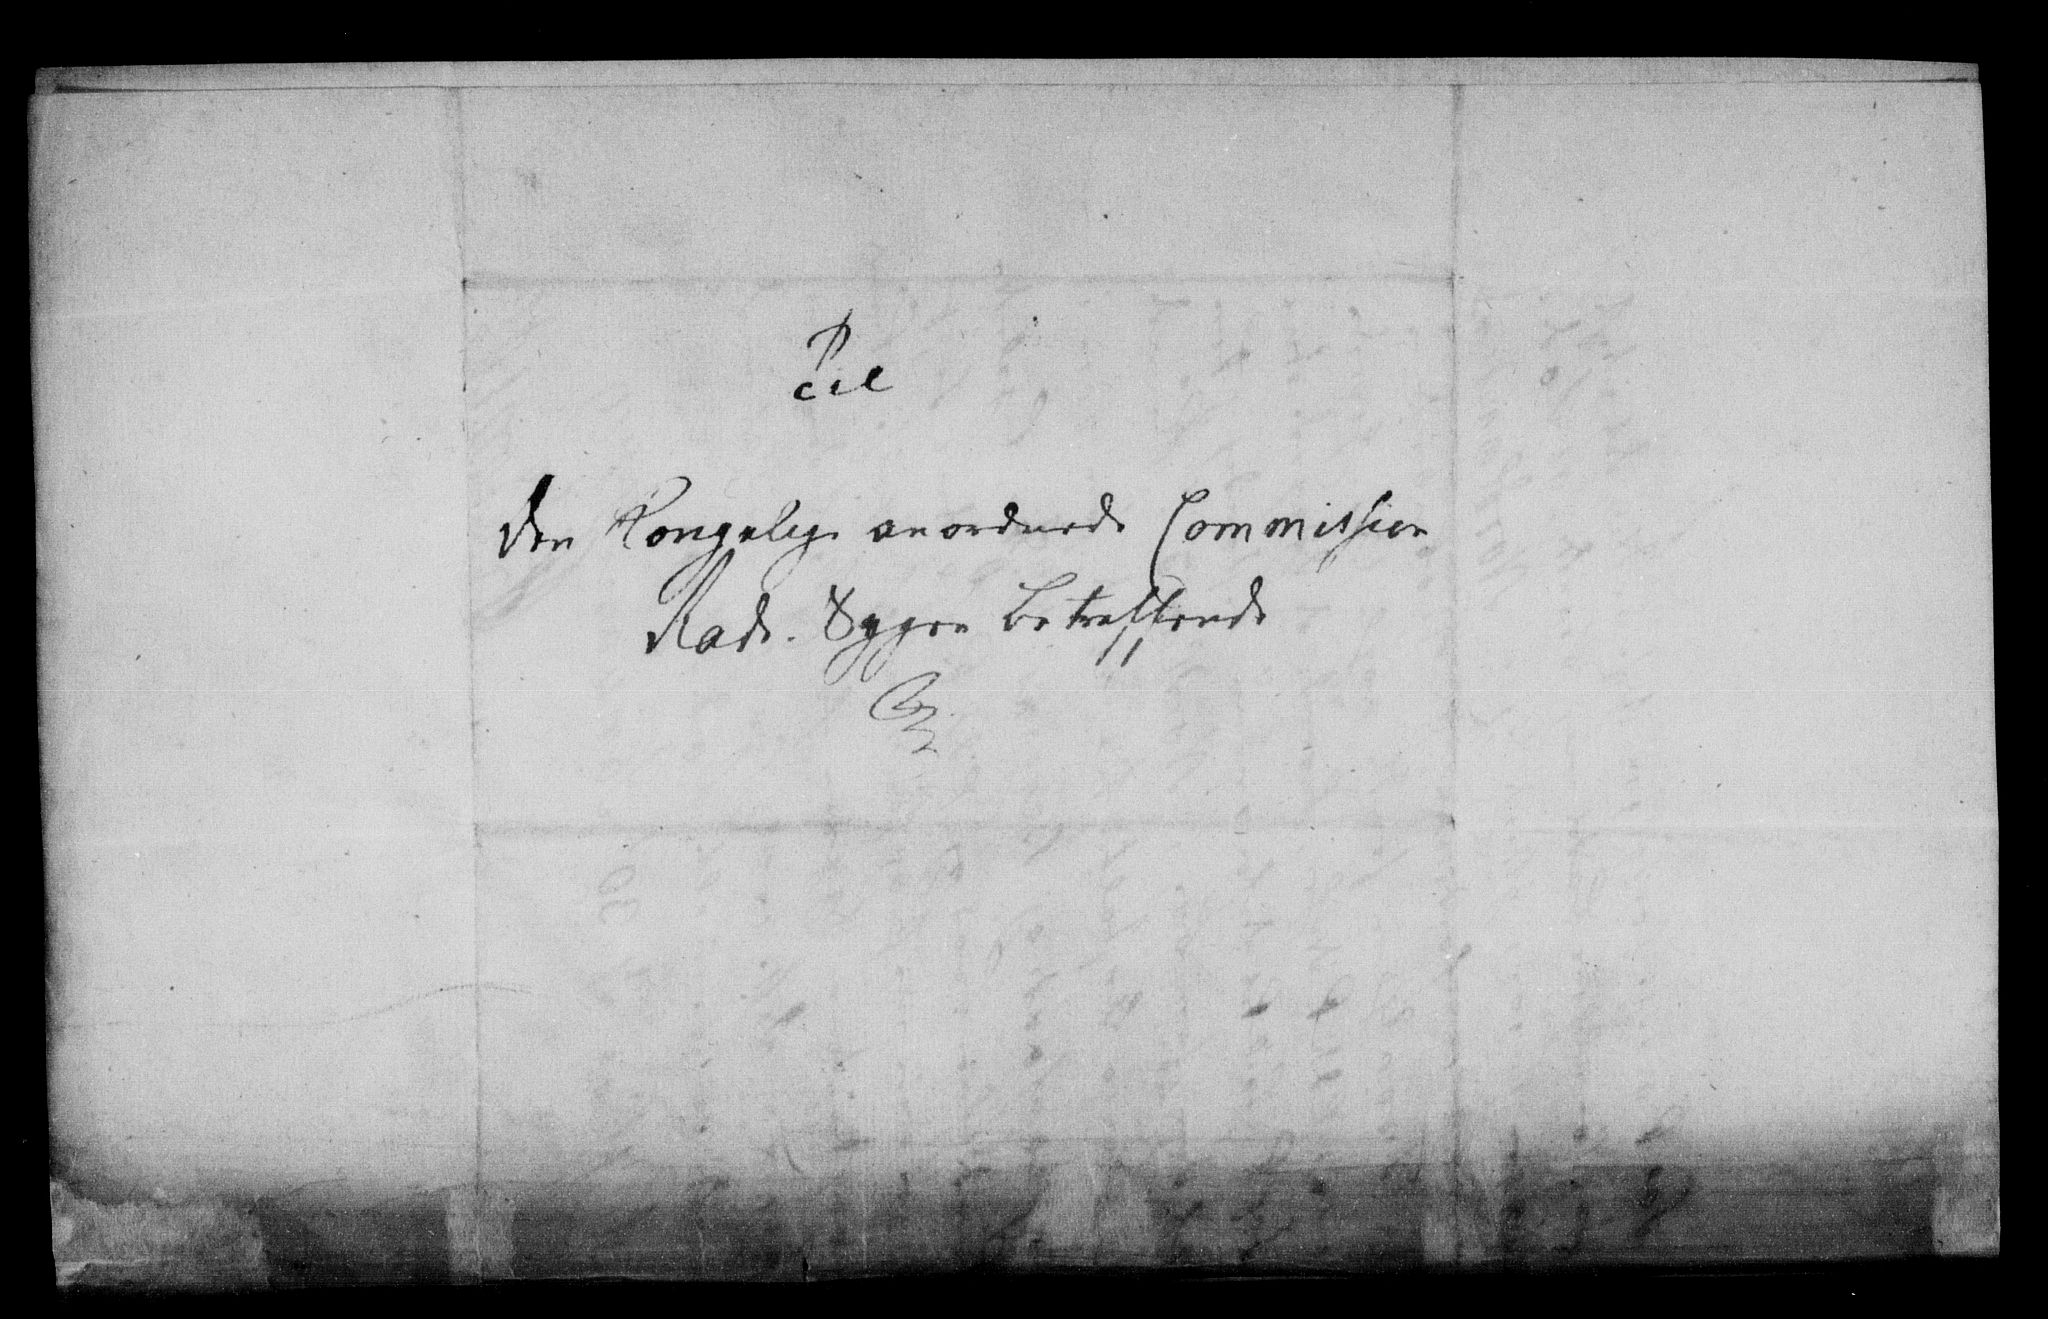 P
Til
Den Kongelige anordnede Commission
Rade Sygen betreffende